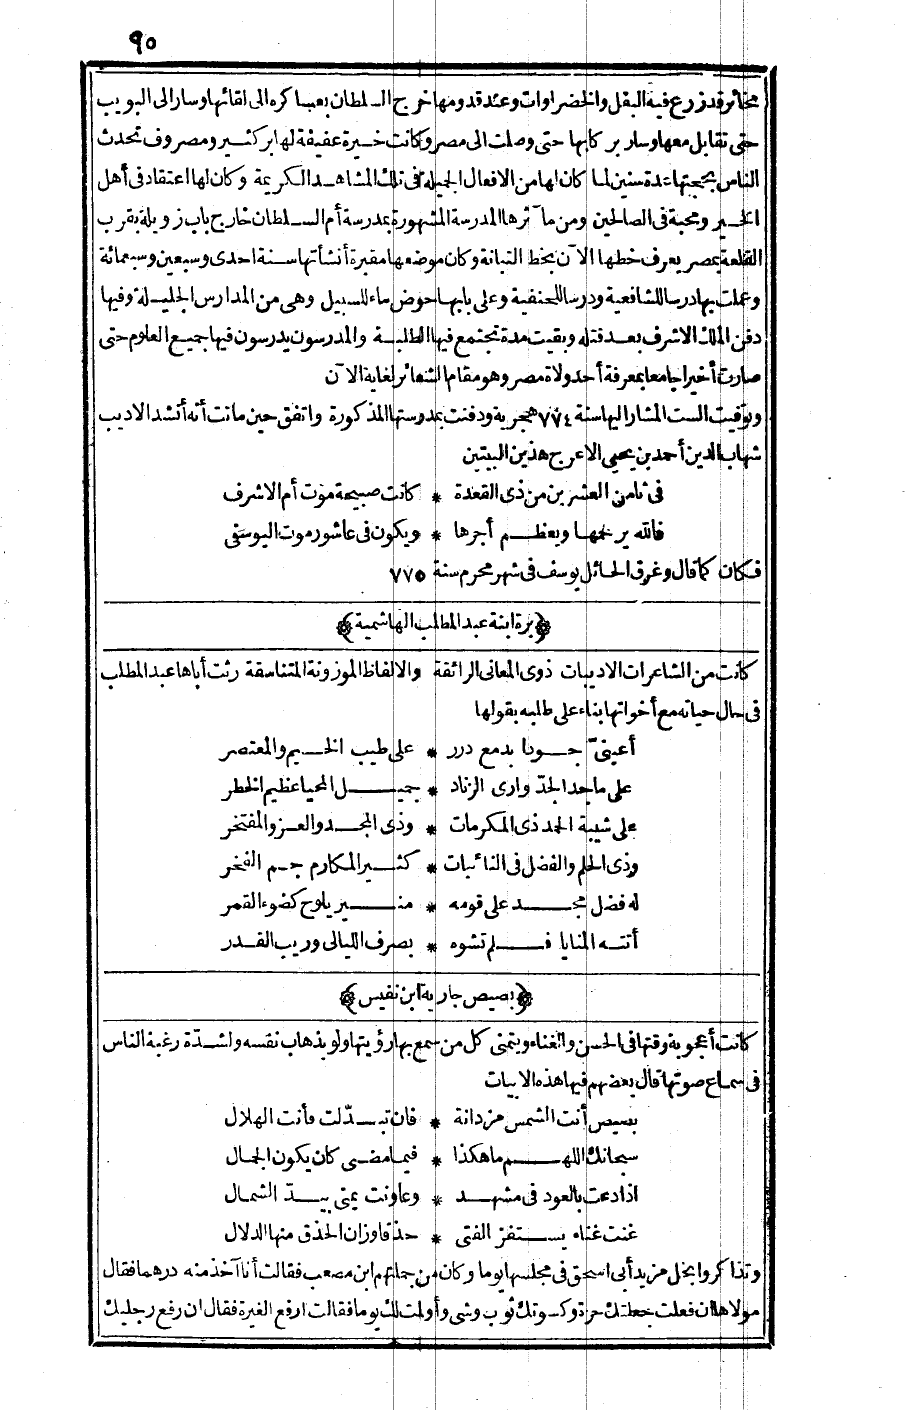 ٩٠
محائر قد زرع فيه البقل والخضراوات وعند قدومها خرج السلطان بعساكره الى لقائها وسار الى البويب
حتى تقابل معها وسار بركابها حتى وصلت الى مصر وكانت خيرة عفيفة لها بر كثير ومصروف تحدث
الناس بحجتها عدة سنين لما كان لها من الافعال الجميلة فى تلك المشاهد الكريمة وكان لها اعتقاد فى أهل
الخير ومحبة فى الصالحين ومن مآثرها المدرسة المشهورة بمدرسة أم السلطان خارج باب زويلة بقرب
القلعة بمصر يعرف خطها الآن بخط التبانة وكان موضعها مقبرة أنشأتها سنة احدى وسبعين وسبعمائة
وعملت بها درسا للشافعية ودرسا للحنفية وعلى بابها حوض ماء للسبيل وهى من المدارس الجليلة وفيها
دفن الملك الاشرف بعد قتله وبقيت مدة تجتمع فيها الطلبة والمدرسون يدرسون فيها جميع العلوم حتى
صارت أخيرا جامعا بمعرفة أحد ولاة مصر وهو مقام الشعائر لغاية الآن
وتوفيت الست المشار اليها سنة ٧٧٤ هجرية ودفنت بمدرستها المذكورة واتفق حين ماتت أنه أنشد الاديب
شهاب الدين أحمد بن يحيى الاعرج هذين البيتين
فى ثامن العشرين من ذى القعدة * كانت صبيحة موت أم الاشرف
فالله يرحمها ويعظم أجرها * ويكون فى عاشور موت اليوسفى
فكان كما قال وغرق الحائل يوسف فى شهر محرم سنة ٧٧٥
﴿برة ابنة عبد المطلب الهاشمية﴾
كانت من الشاعرات الاديبات ذوى المعانى الرائقة والالفاظ الموزونة المتناسقة رثت أباها عبد المطلب
فى حال حياته مع أخواتها بناء على طلبه بقولها
أعينىّ جودا بدمع درر * على طيب الخيم والمعتصر
على ماجد الجدّ وارى الزناد * جميل المحيا عظيم الخطر
على شيبة الحمد ذى المكرمات * وذى المجد والعز والمفتخر
وذى الحلم والفضل فى النائبات * كثير المكارم جم الفخر
له فضل مجد على قومه * منير يلوح كضوء القمر
أتته المنايا فلم تشوه * بصرف الليالى وريب القدر
﴿بصيص جارية ابن نفيس﴾
كانت أعجوبة وقتها فى الحسن والغناء ويتمنى كل من سمع بها رؤيتها ولو بذهاب نفسه ولشدّة رغبة الناس
فى سماع صوتها قال بعضهم فيها هذه الابيات
بصيص أنت الشمس مزدانة * فان تبدّلت فأنت الهلال
سبحانك اللهم ما هكذا * فيما مضى كان يكون الجمال
اذا دعت بالعود فى مشهد * وعاونت يمنى يدّ الشمال
غنت غناء يستفز الفتى * حذقا وزان الحذق منها الدلال
وتذاكروا بخل مزيد أبى اسحق فى مجلسها يوما وكان من جملتهم ابن مصعب فقالت أنا آخذ منه درهما فقال
مولاها ان فعلت جعلتك حرة وكسوتك ثوب وشى وأولمت لك يوما فقالت ارفع الغيرة فقال ان رفع رجليك